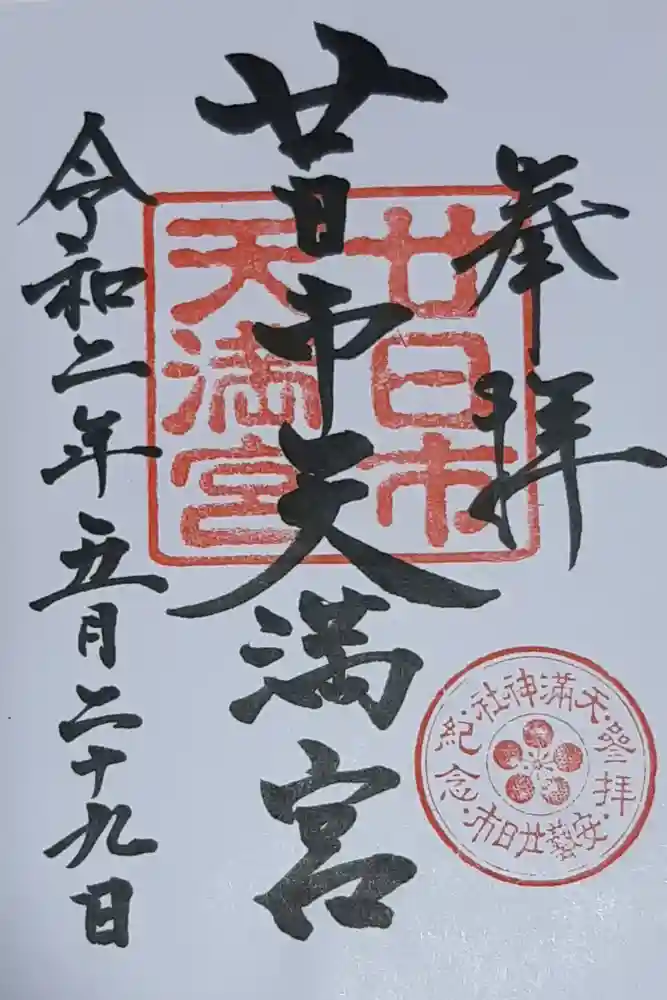 奉拝
廿日市天満宮
令和二年五月二十九日
廿日市
天満宮
天滿神社
參拝
紀念
安藝廿日市